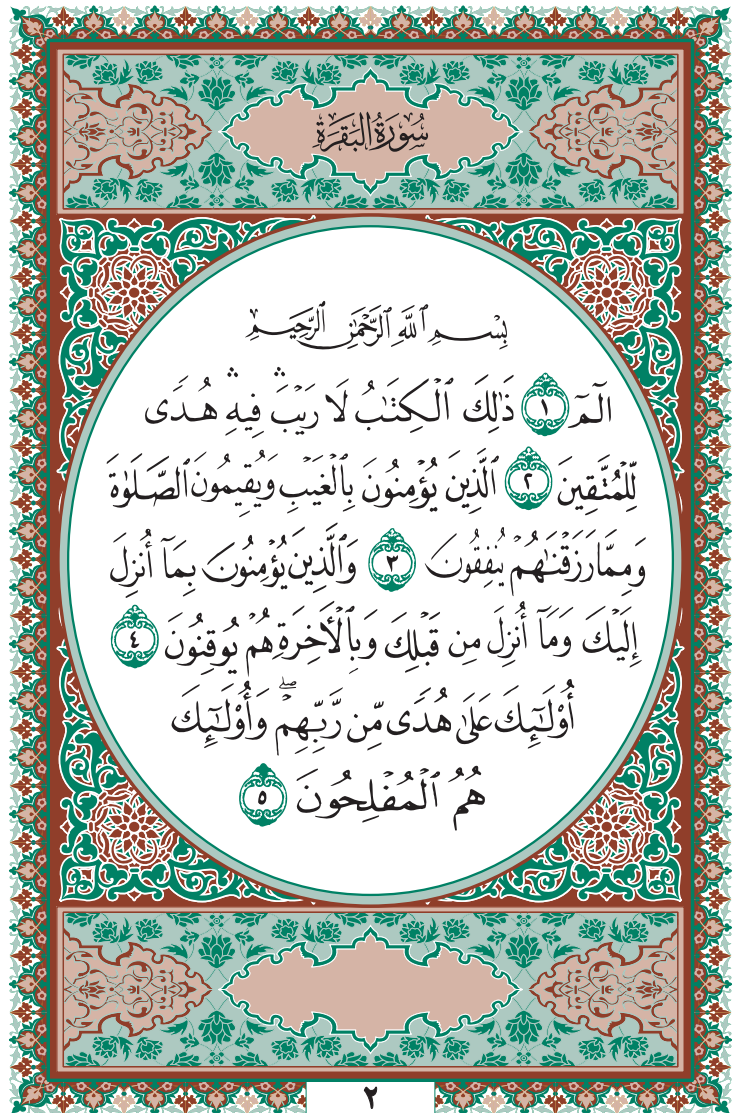 سُورَةُ البَقَرَةِ
بِسۡمِ ٱللَّهِ ٱلرَّحۡمَٰنِ ٱلرَّحِيمِ
الٓمٓ ١ ذَٰلِكَ ٱلۡكِتَٰبُ لَا رَيۡبَۛ فِيهِۛ هُدٗى
لِّلۡمُتَّقِينَ ٢ ٱلَّذِينَ يُؤۡمِنُونَ بِٱلۡغَيۡبِ وَيُقِيمُونَ ٱلصَّلَوٰةَ
وَمِمَّا رَزَقۡنَٰهُمۡ يُنفِقُونَ ٣ وَٱلَّذِينَ يُؤۡمِنُونَ بِمَآ أُنزِلَ
إِلَيۡكَ وَمَآ أُنزِلَ مِن قَبۡلِكَ وَبِٱلۡأٓخِرَةِ هُمۡ يُوقِنُونَ ٤
أُوْلَٰٓئِكَ عَلَىٰ هُدٗى مِّن رَّبِّهِمۡۖ وَأُوْلَٰٓئِكَ
هُمُ ٱلۡمُفۡلِحُونَ ٥
٢